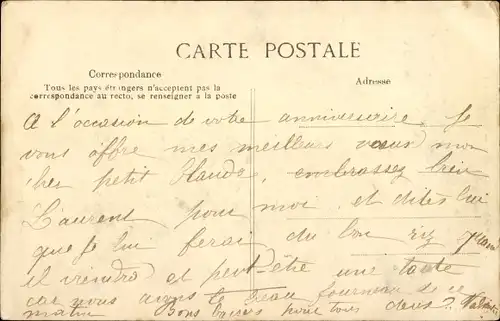 CARTE POSTALE
Correspondance
Tous les pays étrangers n'acceptent pas la
correspondance au recto, se renseigner à la poste
Adresse
A l'occasion de votre anniversaire. Je
vous offre mes meilleurs vœux mon
cher petit Claude, embrassez bien
Laurent pour moi et dites lui
que je lui ferai du bon riz
il viendra et peut-être une tarte
car nous avons le beau fourneau de ce
matin Bons baisers pour tous deux